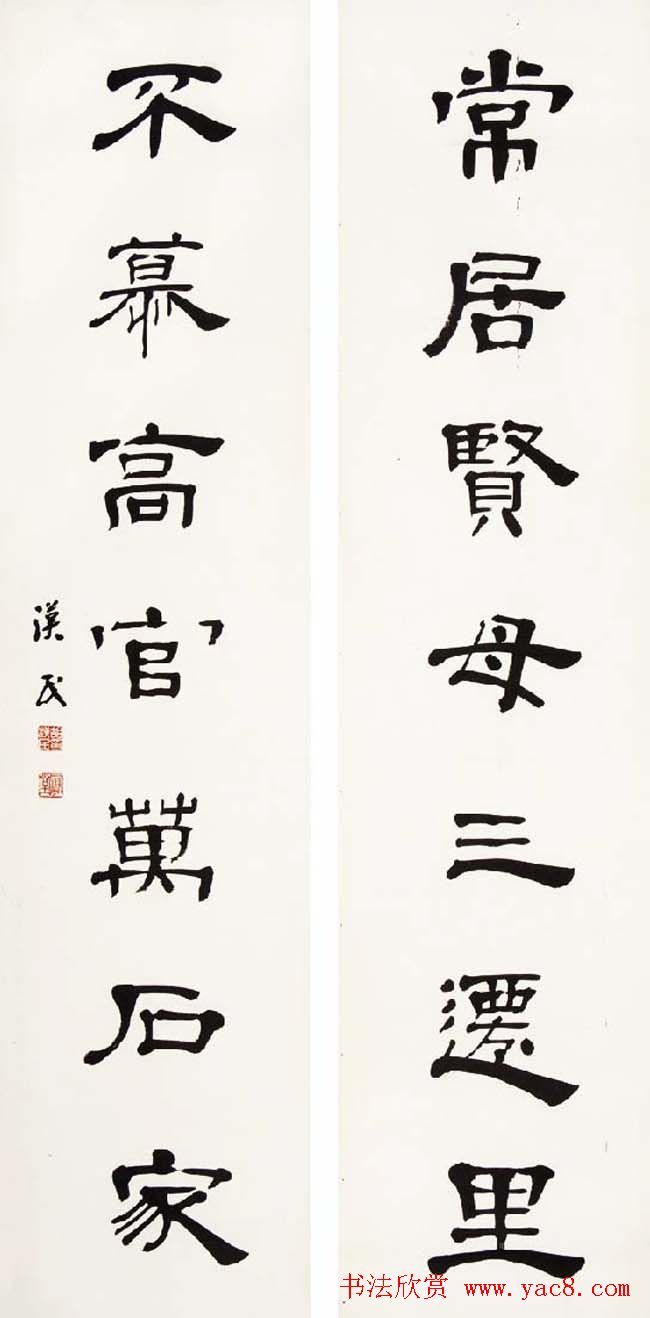 常居賢母三遷里
不慕高官萬石家
漢民
书法欣赏 www.yac8.com